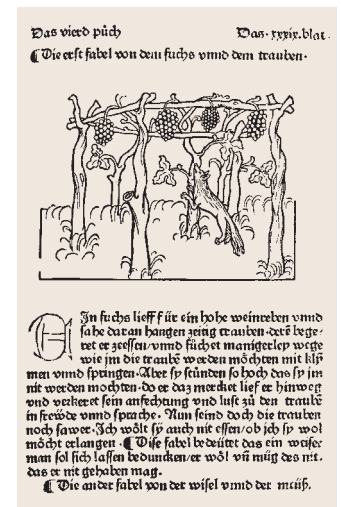 Das vierd půch
Das · xxxix. blat.
¶ Die erst fabel von dem fuchs vnnd dem trauben ·
EIn fuchs lieff für ein hohe weinreben vnnd
sahe daran hangen zeitig trauben · derē bege⸗
ret er zeessen / vnnd sůchet manigerley wege
wie jm die traubē werden möchten mit klÿ
men vnnd springen · Aber sy stůnden so hoch das sy jm
nit werden mochten · do er daz mercket lief er hinweg
vnd verkeret sein anfechtung vnd lust zů den traubē
in frewde vnnd sprache · Nun seind doch die trauben
noch sawer · Ich wölt sÿ auch nit essen / ob ich sy wol
möcht erlangen · ¶ Dise fabel bedeütet das ein weiser
man sol sich lassen beduncken / er wöl vñ müg des nit ·
das er nit gehaben mag ·
¶ Die ander fabel von der wisel vnnd der meüß ·